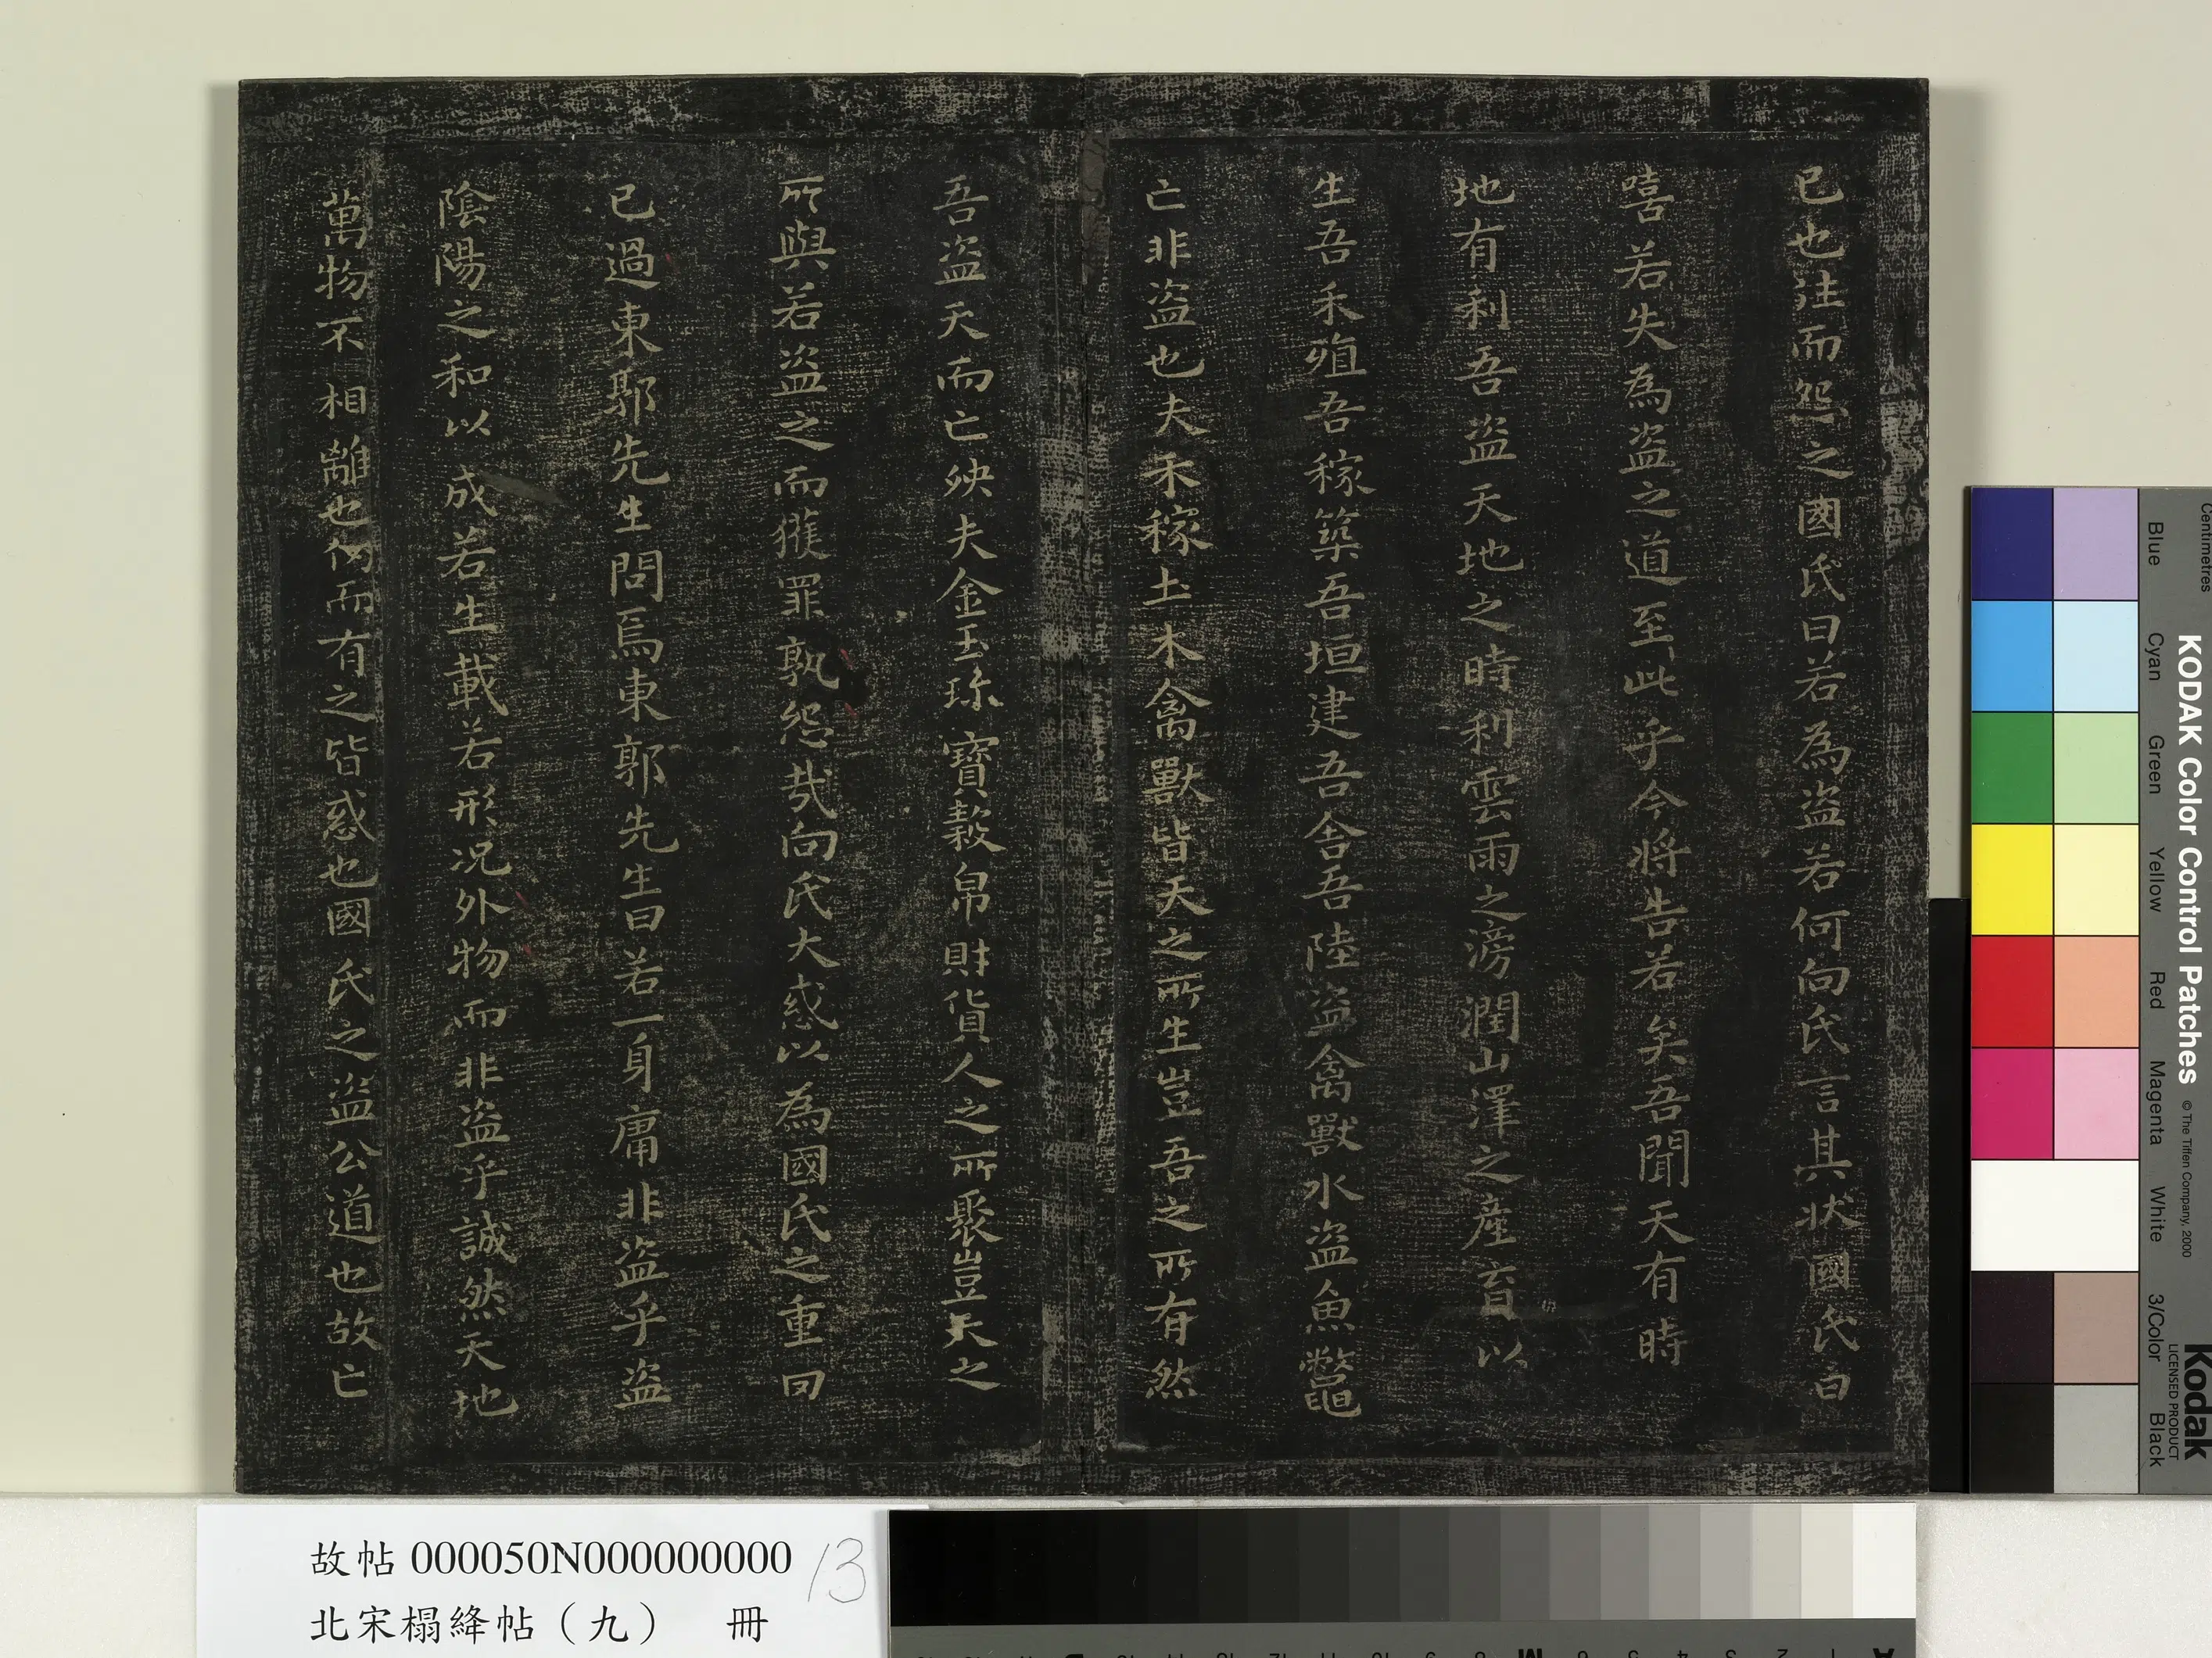 已也往而怨之國氏曰若為盜若何向氏言其狀國氏白
嘻若失為盜之道至此乎今將告若矣吾聞天有時
地有利吾盜天地之時利雲雨之滂潤山澤之産育以
生吾禾殖吾稼築吾垣建吾舍吾陸盜禽獸水盜魚鼈
亡非盜也夫禾稼土木禽獸皆天之所生豈吾之所有然
吾盜天而亡殃夫金玉珎寶糓帛財貨人之所聚豈天之
所與若盜之而獲罪孰怨哉向氏大惑以為國氏之重罔
已過東郭先生問焉東郭先生曰若一身庸非盜乎盜
陰陽之和以成若生載若形況外物而非盜乎誠然天地
萬物不相離也仞而有之皆惑也國氏之盜公道也故亡
故帖000050N000000000 13
北宋榻絳帖（九） 冊
KODAK Color Control Patches © The Tiffen Company, 2000
Kodak
LICENSED PRODUCT
Centimetres
Blue Cyan Green Yellow Red Magenta White 3/Color Black